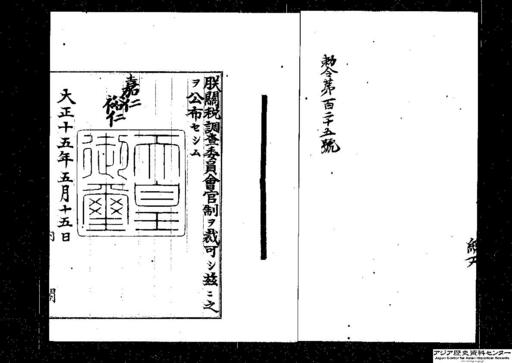 勅令第百二十五號
朕關税調査委員會官制ヲ裁可シ茲ニ之
ヲ公布セシム
嘉仁
裕仁
天皇
御璽
大正十五年五月十五日
アジア歴史資料センター
Japan Center for Asian Historical Records